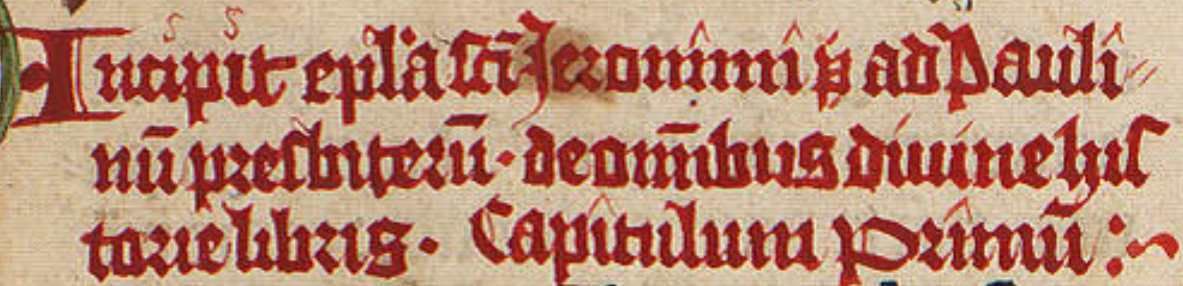 Incipit epl̄a sc̄i Jeronimi p̄ ad Pauli
nū presbiterū · de om̄ibus diuine his
torie libris · Capitulum primū :~